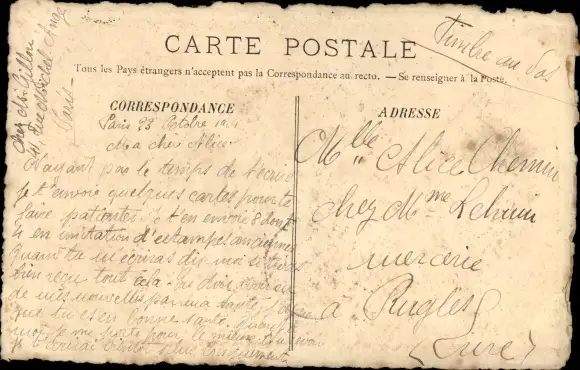 CARTE POSTALE
Tous les Pays étrangers n'acceptent pas la Correspondance au recto. — Se renseigner à la Poste.
Timbre au dos
Chez Mr
Paris
CORRESPONDANCE
Paris 23 Octobre
Ma chère Alice
N'ayant pas le temps de t'écrire
je t'envoie quelques cartes pour te
faire patienter. Je t'en envoie 8 dont
4 en imitation d'estampes anciennes
Quand tu m'écriras dis-moi si tu as
bien reçu tout cela. Tu dois avoir eu
de mes nouvelles par ma tante
que tu es en bonne santé, quant
moi je me porte pour le mieux
je t'écrirai bientôt plus longuement
ADRESSE
Mlle Alice Chemin
chez Mme
mercerie
à Rugles
(Eure)